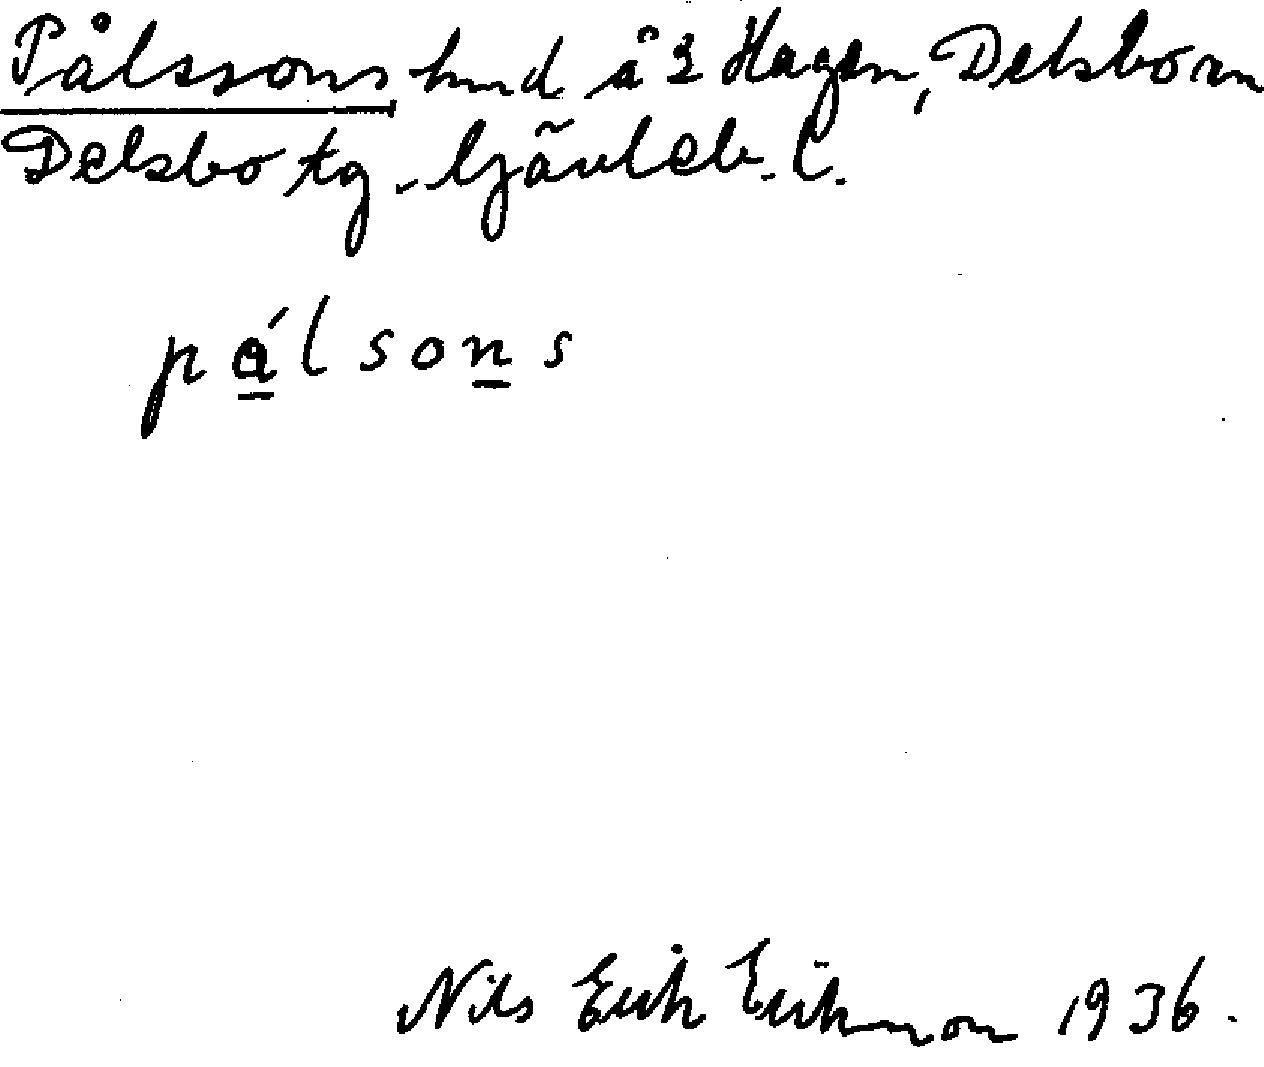 Pålssons hmd å 2 Hagen, Delsbo sn
Delsbo tg. Gävleb. l.
pálsons
Nils Erik Eriksson 1936.